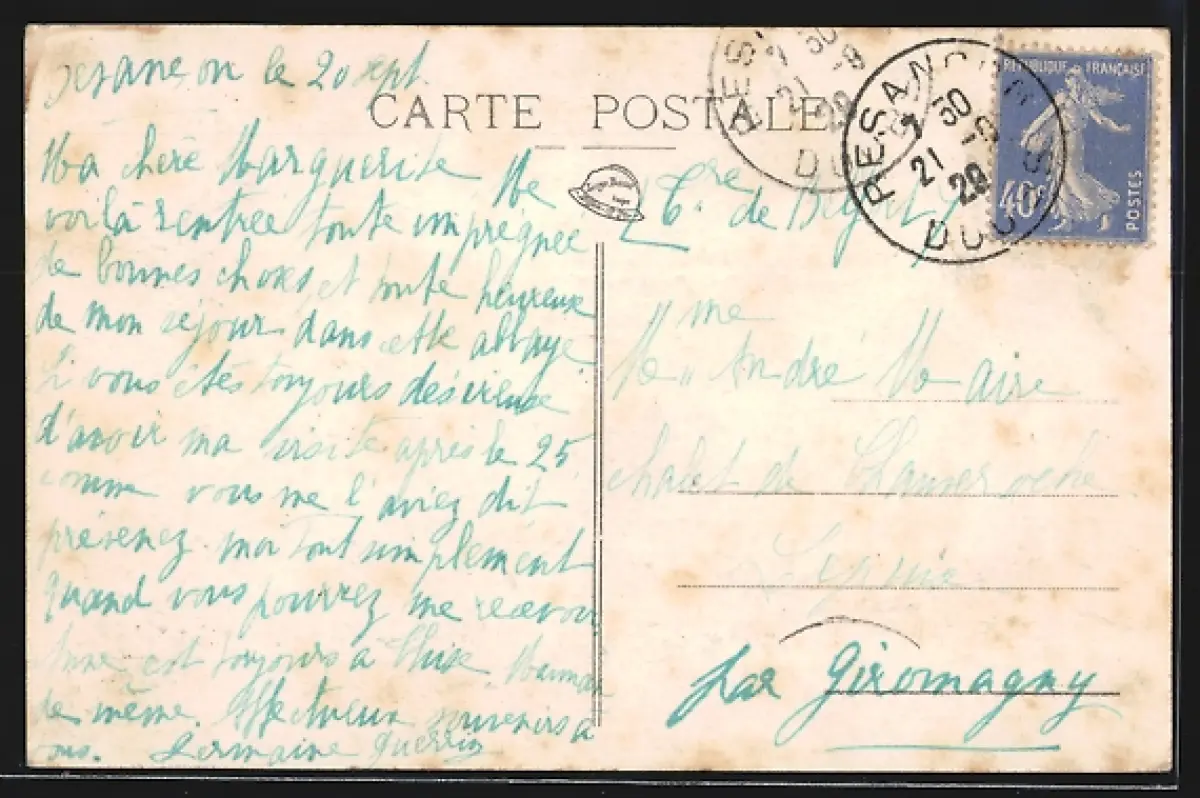 Besançon le 20 sept
CARTE POSTALE
Ma chère Marguerite Me
voilà rentrée toute imprégnée
de bonnes choses et toute heureuse
de mon séjour dans cette abbaye.
Si vous êtes toujours désireuse
d'avoir ma visite après le 25
comme vous me l'aviez dit
prévenez-moi tout simplement
quand vous pourrez me recevoir
Anne est toujours à Maman
de même. Affectueux souvenirs à
vous. Germaine Guerrin
BESANCON
7 30
21 -9
29
DOUBS
BESANCON
7 30
21 -9
29
DOUBS
REPUBLIQUE FRANÇAISE
40c
POSTES
de
Mme
André Maire
chalet de
par Giromagny